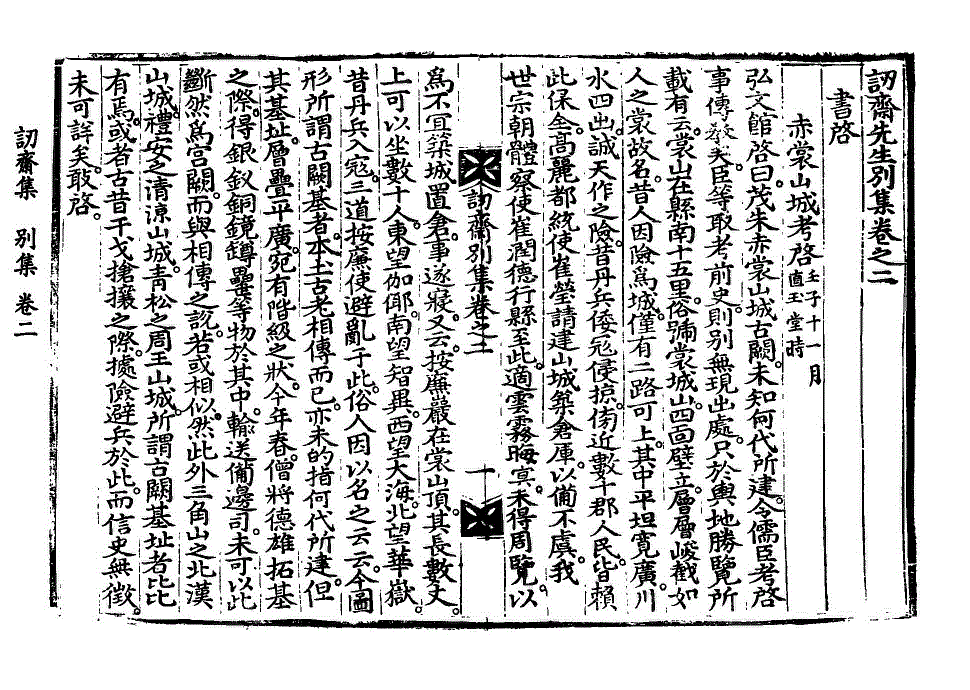 訒齋先生別集卷之二
書啓
赤裳山城考啓 壬子十一月 直玉堂時
弘文館啓曰。茂朱赤裳山城古闕。未知何代所建。令儒臣考啓
事傳敎矣。臣等取考前史。則別無現出處。只於輿地勝覽所
載有云。裳山在縣南十五里。俗號裳城山。四面壁立。層層峻截如
人之裳。故名。昔人因險爲城。僅有二路可上。其中平坦寬廣。川
水四出。誠天作之險。昔丹兵倭寇侵掠。傍近數十郡人民。皆賴
此保全。高麗都統使崔瑩請建山城築倉庫。以備不虞。我
世宗朝體察使崔潤德行縣至此。適雲霧晦冥。未得周覽。以
訒齋別集卷之二
十一
爲不宜築城置倉。事遂寢。又云。按廉巖在裳山頂。其長數丈。
上可以坐數十人。東望伽倻。南望智異。西望大海。北望華嶽。
昔丹兵入寇。三道按廉使避亂于此。俗人因以名之云云。今圖
形所謂古闕基者。本土古老相傳而已。亦未的指何代所建。但
其基址層疊平廣。宛有階級之狀。今年春。僧將德雄拓基
之際。得銀釵銅鏡罇罍等物於其中。輸送備邊司。未可以此
斷然爲宮闕。而與相傳之說。若或相似。然此外三角山之北漢
山城。禮安之淸涼山城。靑松之周王山城。所謂古闕基址者比比
有焉。或者古昔干戈搶攘之際。據險避兵於此。而信史無徵。
未可詳矣。敢啓。
訒齋集 別集 卷二